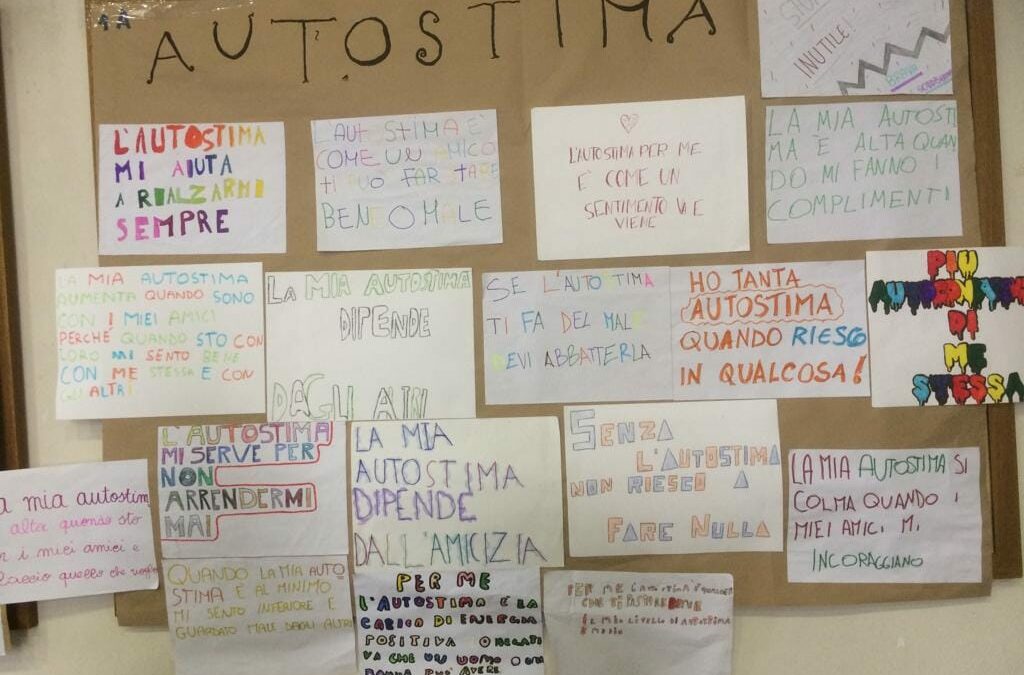 1A
AUTOSTIMA
INUTILE!
L'AUTOSTIMA
MI AIUTA
A RIALZARMI
SEMPRE
L'AUTOSTIMA È
COME UN AMICO
TI PUÒ FAR STARE
BENE O MALE
L'AUTOSTIMA PER ME
E' COME UN
SENTIMENTO VA E
VIENE
LA MIA AUTOSTI
MA È ALTA QUAN
DO MI FANNO I
COMPLIMENTI
LA MIA AUTOSTIMA
AUMENTA QUANDO SONO
CON I MIEI AMICI
PERCHÉ QUANDO STO CON
LORO MI SENTO BENE
CON ME STESSA E CON
GLI ALTRI.
LA MIA AUTOSTIMA
DIPENDE
DAGLI
SE L'AUTOSTIMA
TI FA DEL MALE
DEVI ABBATTERLA
HO TANTA
AUTOSTIMA
QUANDO RIESCO
IN QUALCOSA!
PIÙ
DI
ME
STESSA
a mia autostim
alta quando sto
n i miei amici e
faccio quello che voglio
L'AUTOSTIMA
MI SERVE PER
NON
ARRENDERMI
MAI
LA MIA
AUTOSTIMA
DIPENDE
DALL'AMICIZIA
SENZA
L'AUTOSTIMA
NON RIESCO A
FARE NULLA
LA MIA AUTOSTIMA SI
COLMA QUANDO I
MIEI AMICI MI
INCORAGGIANO
QUANDO LA MIA AUTO-
STIMA È AL MINIMO
MI SENTO INFERIORE E
GUARDATO MALE DAGLI ALTRI
PER ME
L'AUTOSTIMA È LA
CARICA DI ENERGIA
POSITIVA O NEGATI
VA CHE UN UOMO O UN
DONNA PUÒ AVERE
PER ME L'AUTOSTIMA È
CHE TI FA STARE BENE
IL MIO LIVELLO DI AUTOSTIMA
È MEDIO